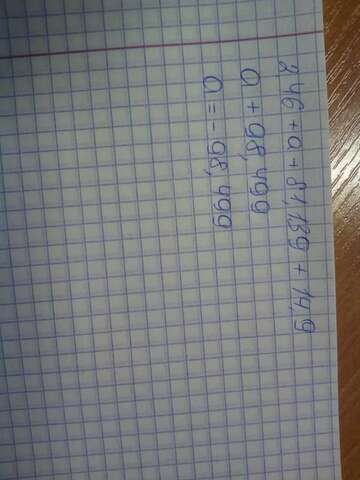 2,46 + a + 81,139 + 14,9
a + 98,499
a = - 98,499